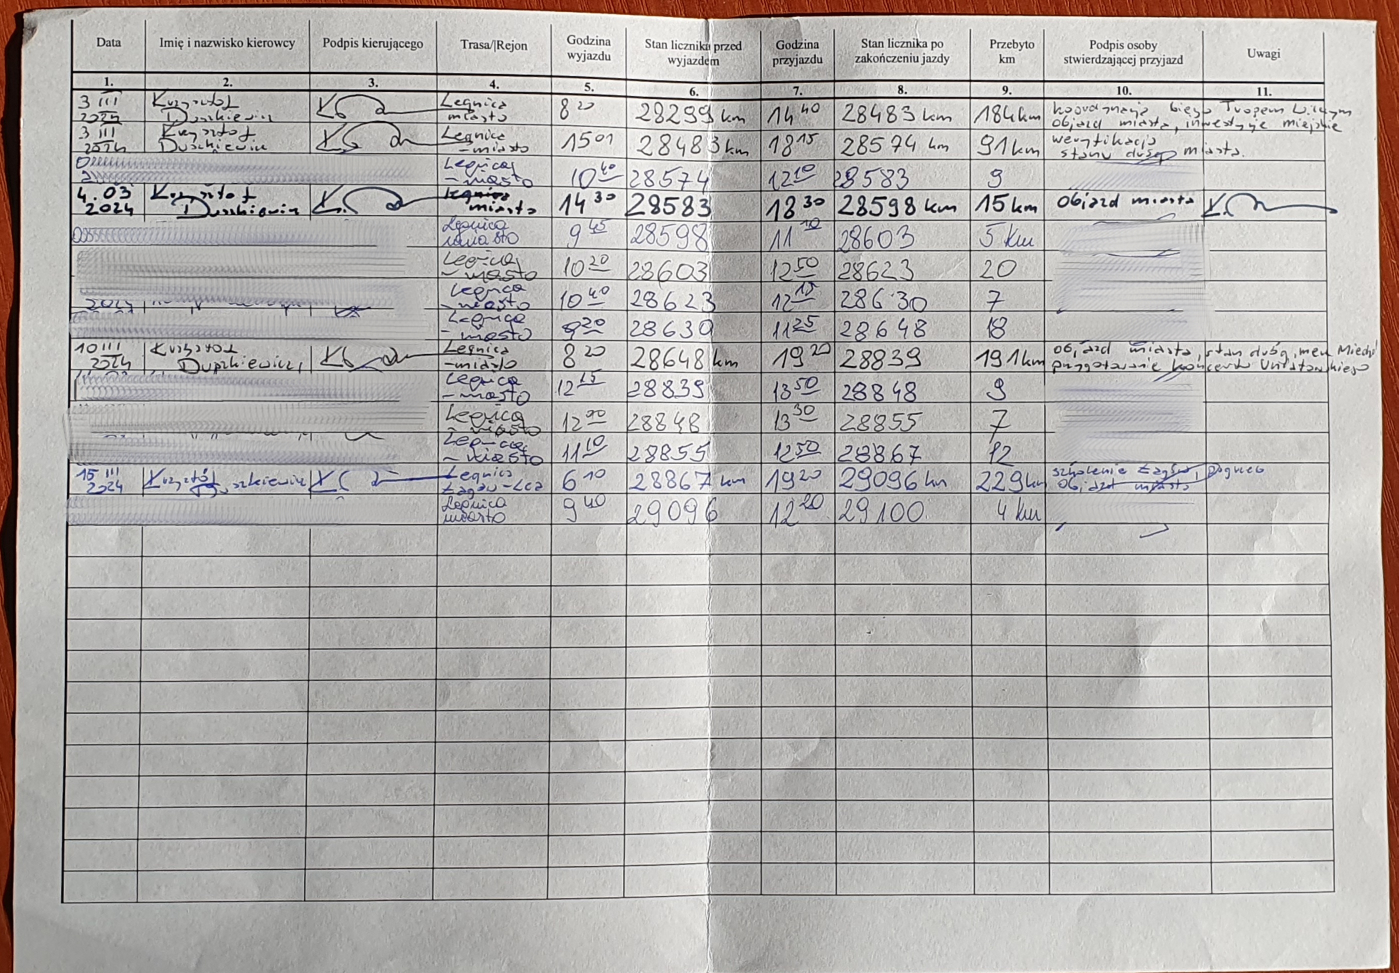 Data Imię i nazwisko kierowcy Podpis kierującego Trasa/|Rejon Godzina wyjazdu Stan licznika przed wyjazdem Godzina przyjazdu Stan licznika po zakończeniu jazdy Przebyto km Podpis osoby stwierdzającej przyjazd Uwagi
1. 2. 3. 4. 5. 6. 7. 8. 9. 10. 11.
3 III 2024 Krzysztof Duszkiewicz Legnica miasto 8 20 28299 km 14 40 28483 km 184 km koordynacja biegu Tropem Wilczym objazd miasta, inwestycje miejskie
3 III 2024 Krzysztof Duszkiewicz Legnica - miasto 15 01 28483 km 18 15 28574 km 91 km weryfikacja stanu dróg miasta.
Legnica - miasto 10 40 28574 12 10 28583 9
4.03 2024 Krzysztof Duszkiewicz Legnica miasto 14 30 28583 18 30 28598 km 15 km objazd miasta
Legnica miasto 9 45 28598 11 10 28603 5 km
Legnica - miasto 10 20 28603 12 50 28623 20
2024 Legnica - miasto 10 40 28623 12 15 28630 7
Legnica - miasto 9 20 28630 11 25 28648 18
10 III 2024 Krzysztof Duszkiewicz Legnica - miasto 8 20 28648 km 19 20 28839 191 km objazd miasta, stan dróg, przygotowanie koncertu
Legnica - miasto 12 15 28839 13 50 28848 9
Legnica - miasto 12 00 28848 13 30 28855 7
Legnica - miasto 11 10 28855 12 50 28867 12
15 III 2024 Krzysztof Duszkiewicz Legnica Żagań-Lca 6 10 28867 km 19 20 29096 km 229 km szkolenie Żagań objazd miasta
Legnica miasto 9 40 29096 12 20 29100 4 km